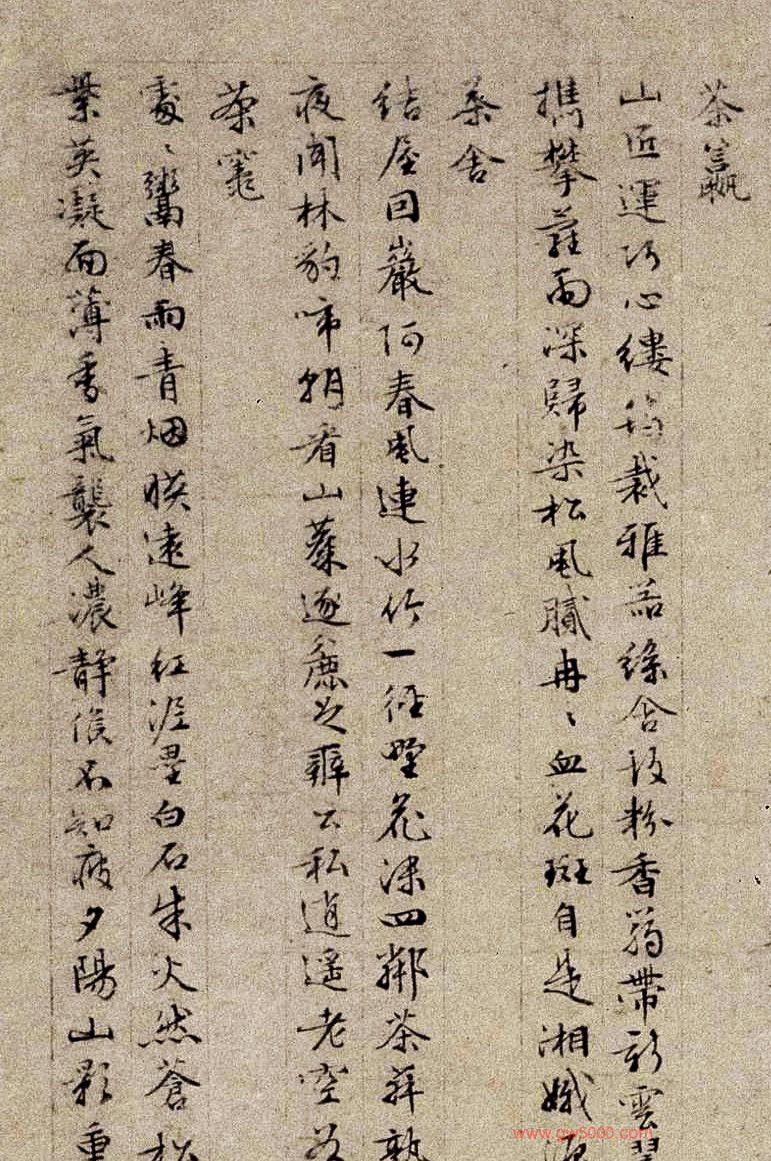 茶籝
山匠運巧心縷筠裁雅器綠含故粉香篛帶新雲翠
攜攀蘿雨深歸染松風膩冉〻血花斑自是湘娥
茶舍
結屋因巖阿春風連水竹一徑野花深四鄰茶荈熟
夜聞林豹啼朝看山麋逐麁足辦公私逍遙老空谷
茶竈
處〻鬻春雨青烟暎遠峰紅泥壘白石朱火然蒼松
紫英凝面薄香氣襲人濃靜候不知疲夕陽山影重
www.gw5000.com